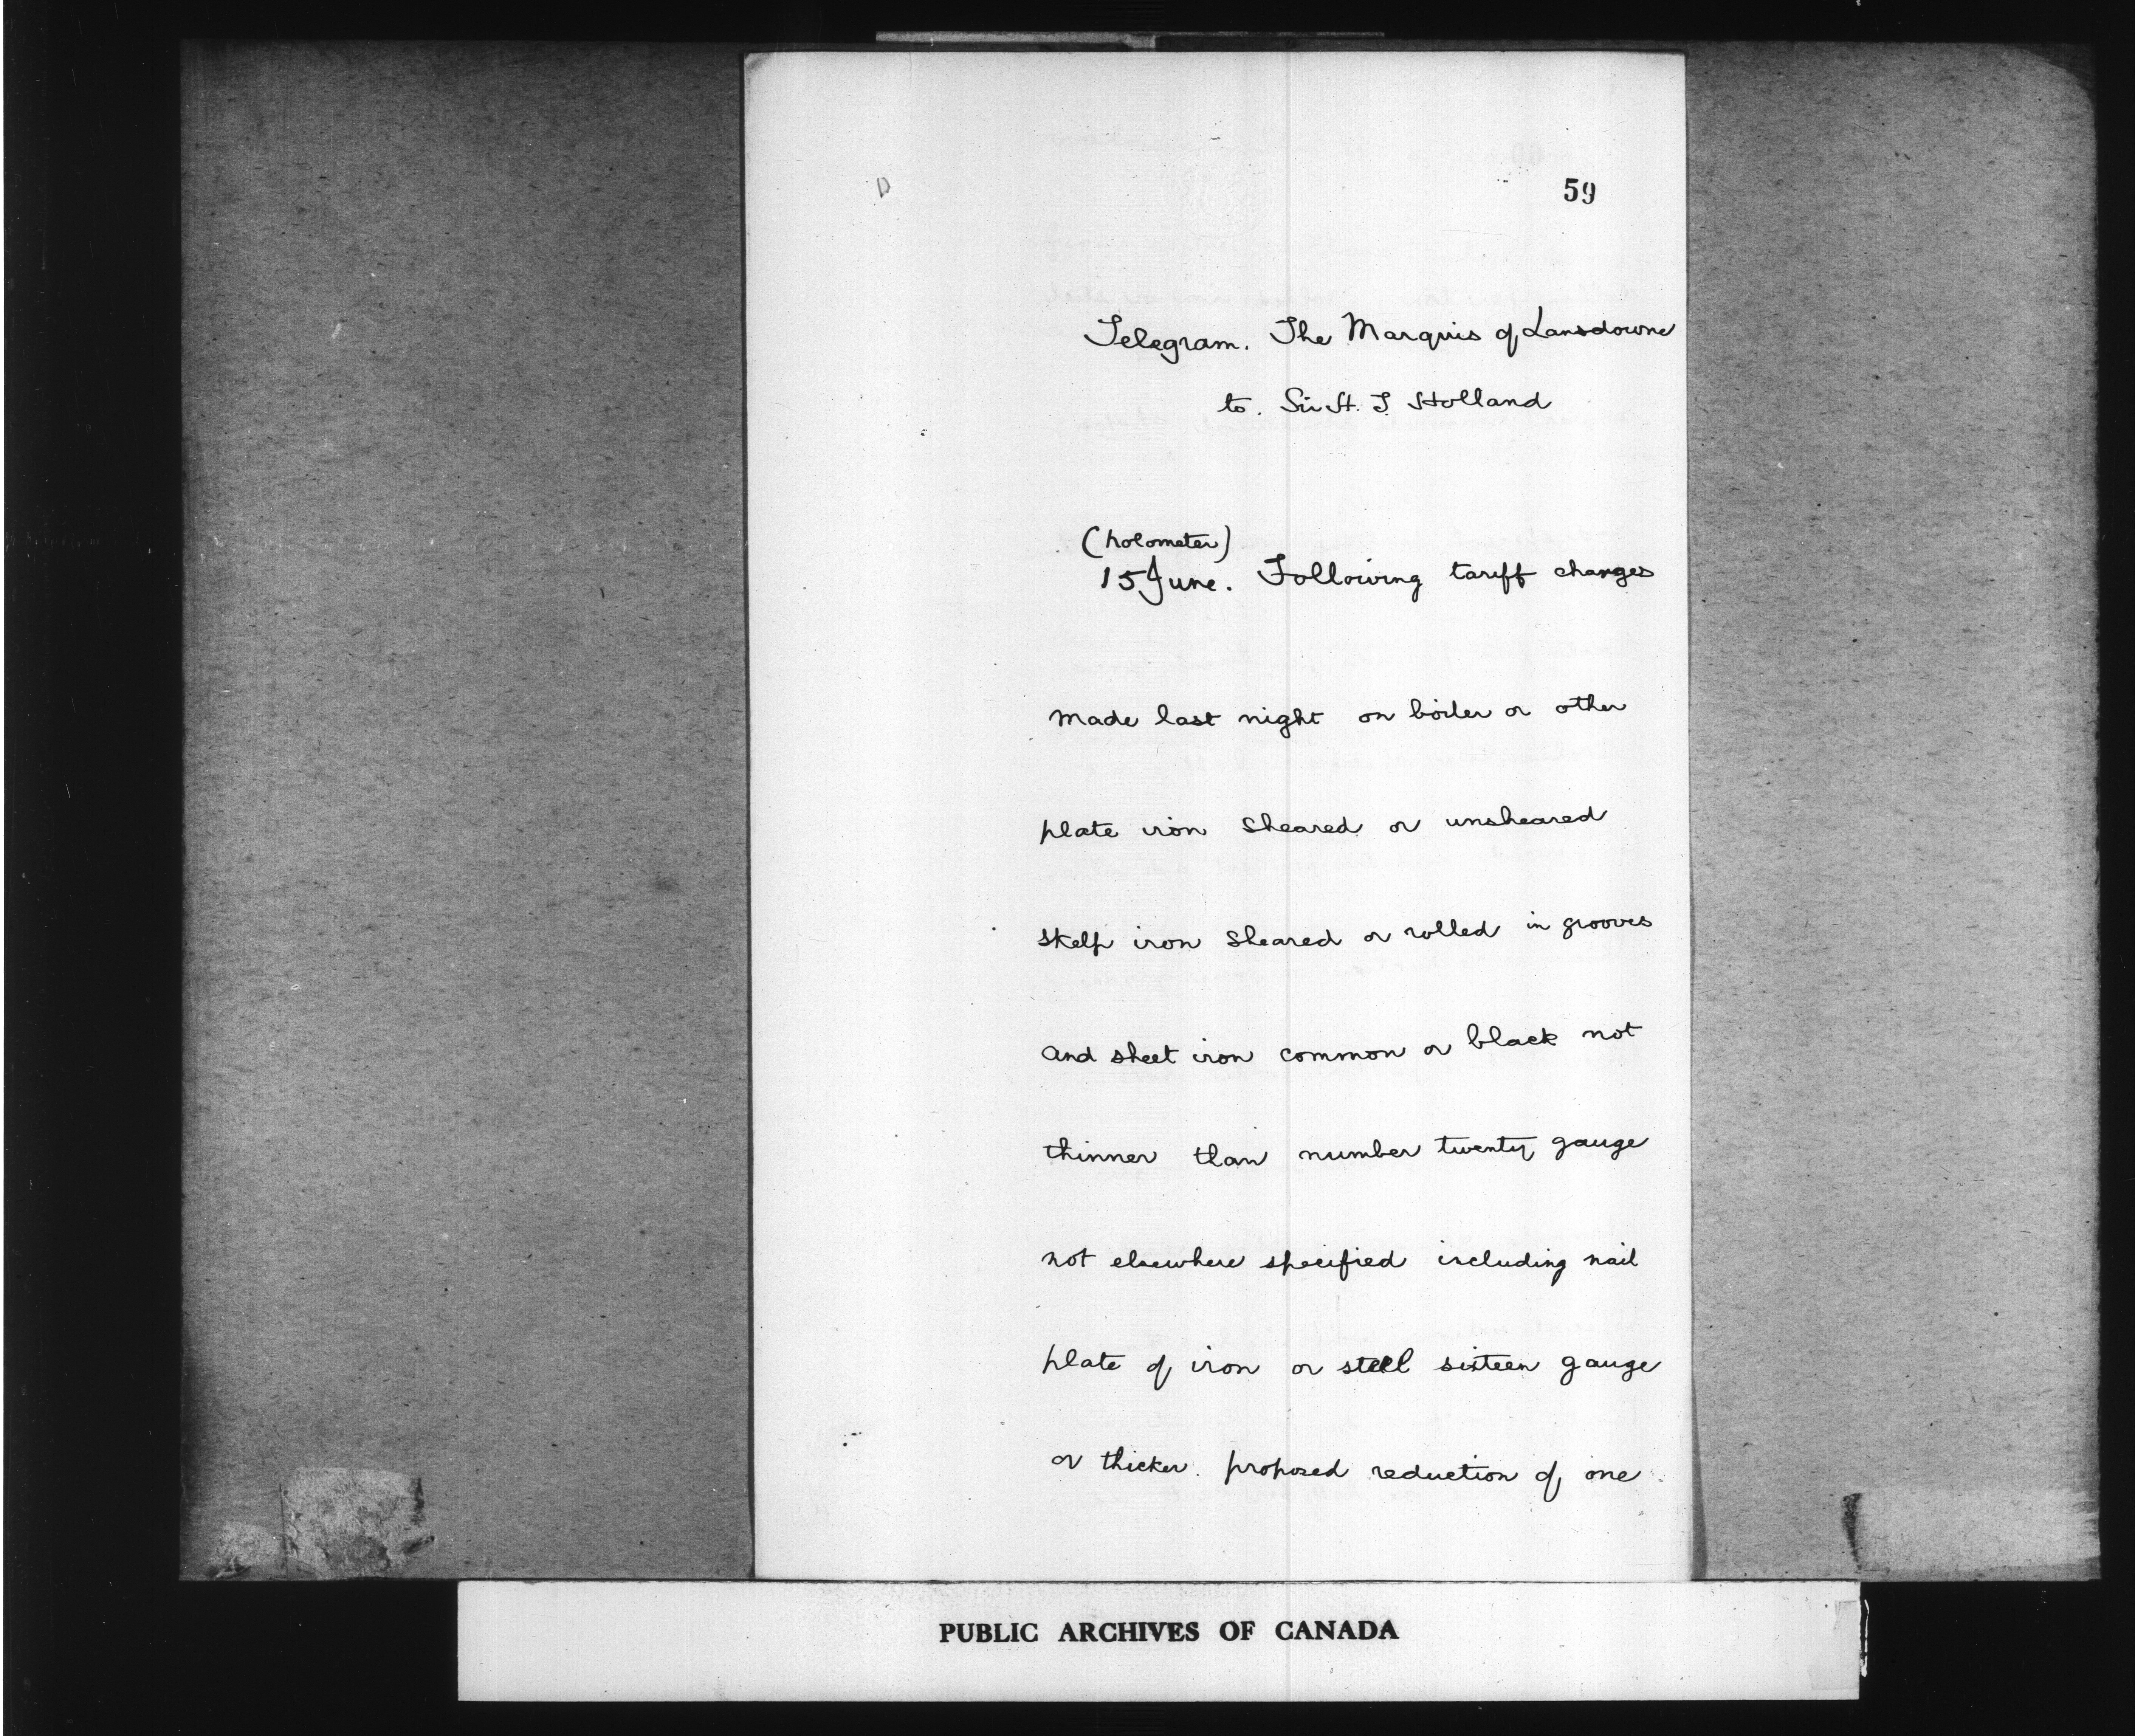 D
59
Telegram. The Marquis of Lansdowne
to. Sir H. T Holland
(holometer)
15 June. Following tariff changes
made last night on boiler or other
plate iron sheared or unsheared
skelp iron sheared or rolled in grooves
and sheet iron common or black not
thinner than number twenty gauge
not elsewhere specified including nail
plate of iron or steel sixteen gauge
or thicker. proposed reduction of one
PUBLIC ARCHIVES OF CANADA